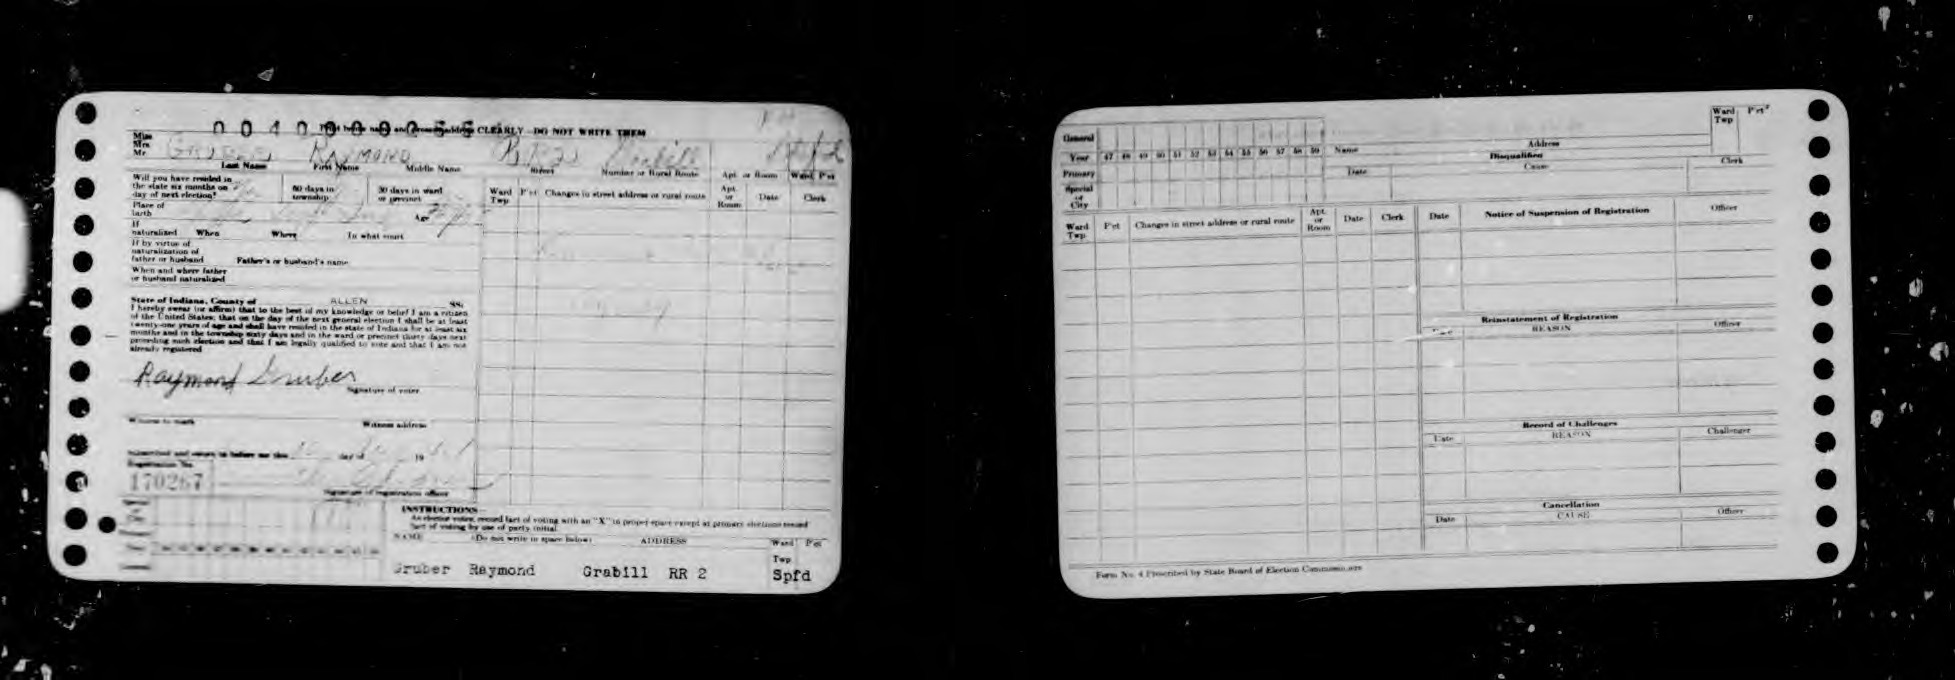 Print below name and address CLEARLY DO NOT WRITE THEM
Miss
Mrs.
Mr. GRUBER RAYMOND R R 2 Grabill Spfd
Last Name First Name Middle Name Street Number or Rural Route Apt. or Room Ward P'ct
Will you have resided in
the state six months on
day of next election?
60 days in
township
30 days in ward
or precinct
Ward
Twp
P'ct
Changes in street address or rural route
Apt.
or
Room
Date
Clerk
Place of
birth
Age
If
naturalized When Where In what court
If by virtue of
naturalization of
father or husband Father's or husband's name
When and where father
or husband naturalized
State of Indiana, County of ALLEN SS:
I hereby swear (or affirm) that to the best of my knowledge or belief I am a citizen
of the United States; that on the day of the next general election I shall be at least
twenty-one years of age and shall have resided in the state of Indiana for at least six
months and in the township sixty days and in the ward or precinct thirty days next
preceding such election and that I am legally qualified to vote and that I am not
already registered
Raymond Gruber
Signature of voter
Witness to mark Witness address
Subscribed and sworn to before me this day of 19
Registration No.
170267
Signature of registration officer
INSTRUCTIONS
At election votes, record fact of voting with an "X" in proper space except at primary elections record
fact of voting by use of party initial
NAME (Do not write in space below) ADDRESS Ward P'ct
Twp
Gruber Raymond Grabill RR 2 Spfd
Ward
Twp
P'ct
General
Year 47 48 49 50 51 52 53 54 55 56 57 58 59
Primary
Special
or
City
Name Address
Disqualified
Date Cause Clerk
Ward
Twp
P'ct
Changes in street address or rural route
Apt.
or
Room
Date
Clerk
Date Notice of Suspension of Registration Officer
Reinstatement of Registration
Date REASON Officer
Record of Challenges
Date REASON Challenger
Cancellation
Date CAUSE Officer
Form No. 4 Prescribed by State Board of Election Commissioners